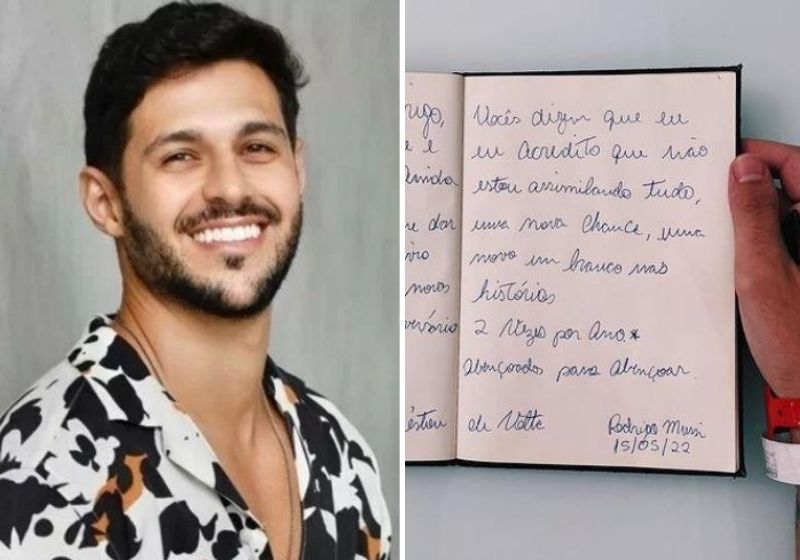 e
dar
novos
Vocês dizem que eu
eu Acredito que não
estou assimilando tudo,
uma nova Chance, uma
novo em branco nas
histórias
2 Vezes por Ano*
Abençoados para Abençoar.
de Volta
Rodrigo Mussi
15/05/22